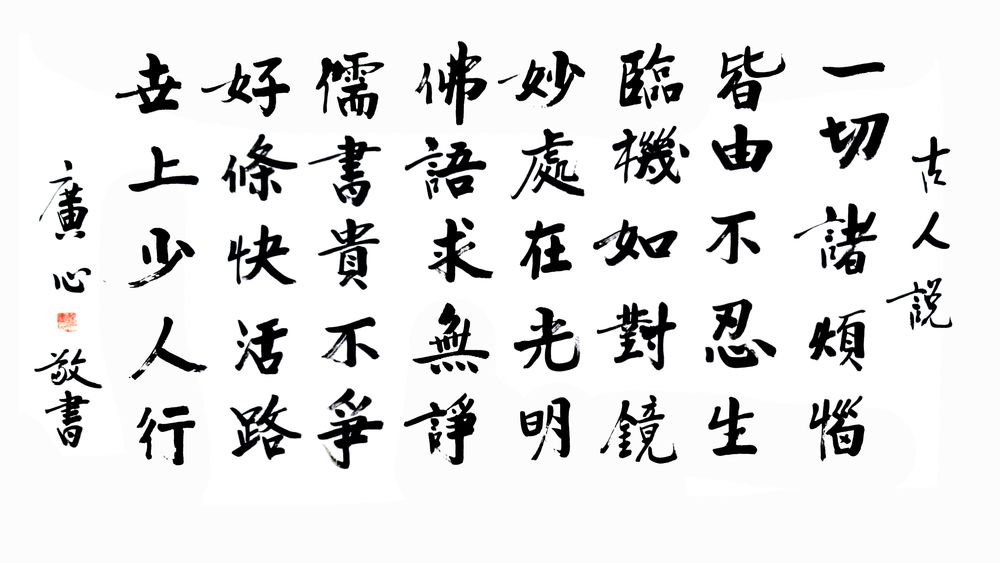 古人説
一切諸煩惱
皆由不忍生
臨機如對鏡
妙處在光明
佛語求無諍
儒書貴不爭
好條快活路
世上少人行
廣心
敬書